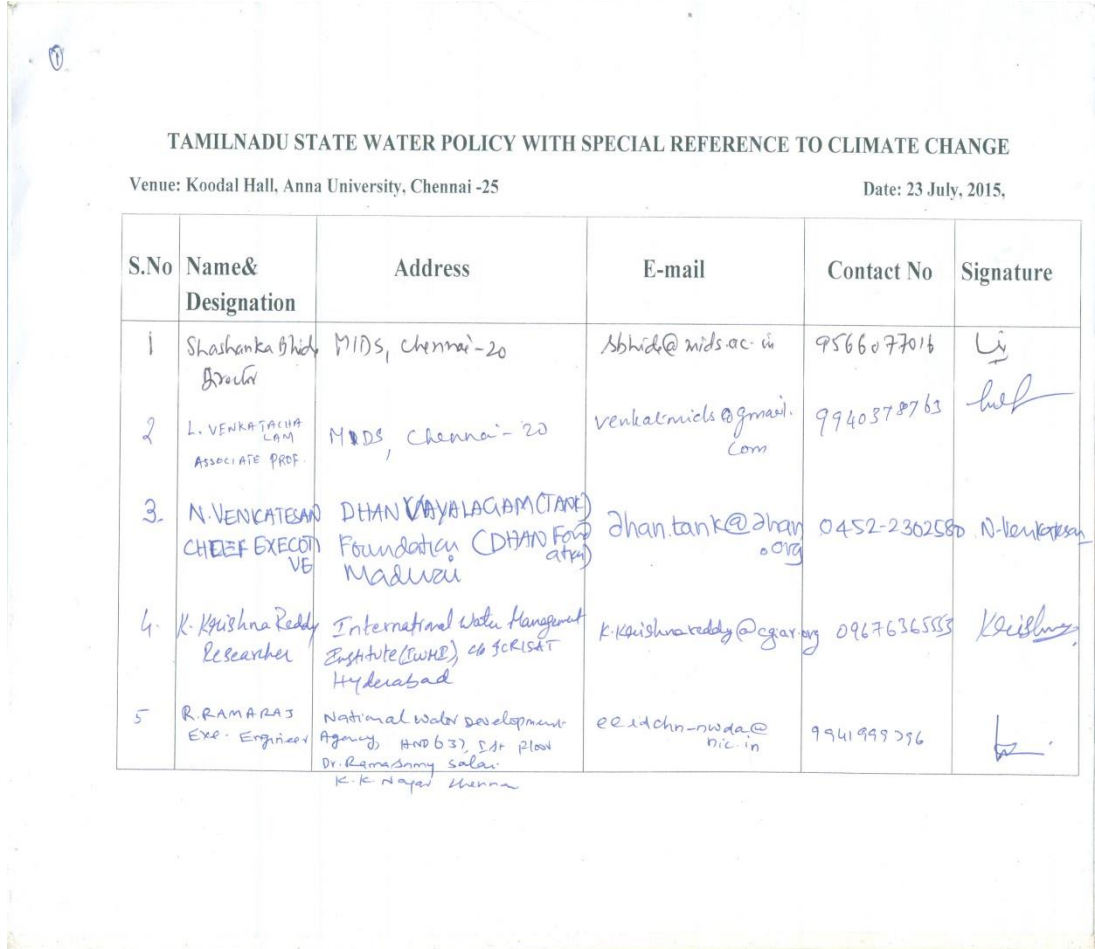 1
TAMILNADU STATE WATER POLICY WITH SPECIAL REFERENCE TO CLIMATE CHANGE
Venue: Koodal Hall, Anna University, Chennai -25
Date: 23 July, 2015,
S.No
Name&
Designation
Address
E-mail
Contact No
Signature
1
Shashanka Bhide
Director
MIDS, Chennai-20
sbhide@mids.ac.in
9566077016
2
L. VENKATACHA
LAM
ASSOCIATE PROF.
MIDS, Chennai-20
venkatmids@gmail.
com
9940378763
3.
N.VENKATESAN
CHIEF EXECUTI
VE
DHAN VAYALAGAM (TANK)
Foundation (DHAN Found
ation)
Madurai
dhan.tank@dhan
.org
0452-2302580
N-Venkatesan
4.
K. Krishna Reddy
Researcher
International Water Management
Institute (IWMI), c/o ICRISAT
Hyderabad
K.Krishnareddy@cgiar.org
09676365553
5
R.RAMARAJ
Exe. Engineer
National Water Development
Agency, HNO 637, Ist Floor
Dr.Ramasamy salai
K.K Nagar Chennai
eeidchn-nwda@
nic.in